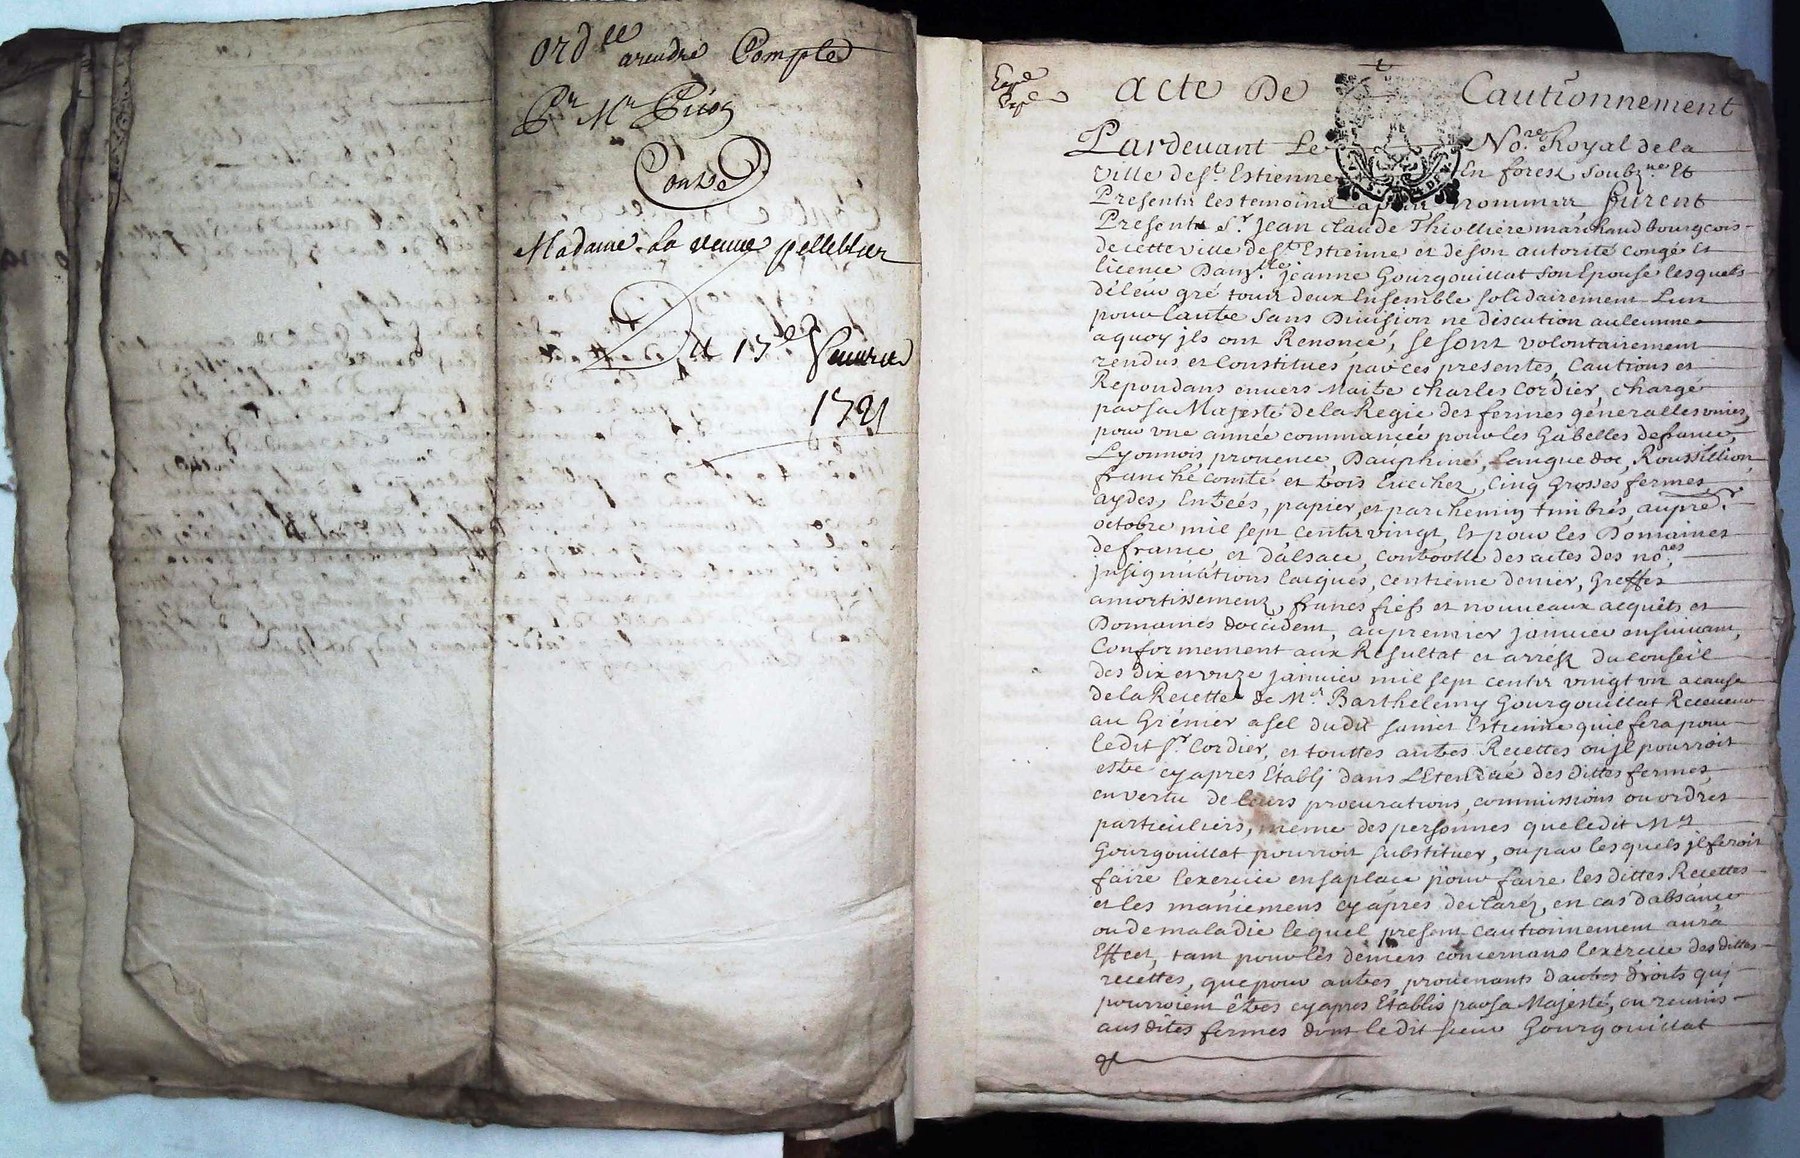 Ord.ce
a rendre Compte
Pr Mr Picoy
Contre
Madame La veuve pelletier
Du 13e fevrier
1721
Expd
Expe
Acte De Cautionnement
Pardevant Le Nore. Royal de la
ville de St. Estienne En forest soubs.ne Et
Presents les temoins apres nommez furent
Presents Sr. Jean Claude Thiolliere marchand bourgeois
de cette ville de St. Estienne et de son autorité congé et
licence Damlle. Jeanne Gourgouillat son Epouse lesquels
de leur gré tous deux Ensemble solidairement L'un
pour l'autre sans Division ne discution aucunne
a quoy jls ont Renoncé, se sont volontairement
rendus et Constitués par ces presentes, Cautions et
Repondans envers Maitre Charles Cordier, chargé
par sa Majesté de la Regie des fermes generalles unies,
pour une année commancée pour les Gabelles de france,
Lyonnois provence, Dauphiné, Languedoc, Roussillion,
franche comté et trois Evechez, Cinq Grosses fermes,
aydes, Entrées, papier, et parchemin timbrés, au pre.r
octobre mil sept cents vingt, Et pour les Domaines
de france et d'alsace, controolle des actes des nores,
jnsignuations laiques, centieme denier, Greffes
amortissement, francs fiefs et nouveaux acquêts et
Domaines d'occident, au premier janvier ensuivant,
Conformement aux Resultat et arrest du Conseil
des dix et onze janvier mil sept cents vingt un a cause
de la Recette de Mr. Barthelemy Gourgouillat Receveur
au Grenier a sel dudit saint Estienne qu'il fera pour
ledit Sr. Cordier, et touttes autres Recettes ou jl pourroit
estre cy apres Etablj dans L'Etendüe des dittes fermes,
en vertu de leurs procurations, commissions ou ordres
particuliers, meme des personnes que ledit Mr
Gourgouillat pourroit substituer, ou par lesquels jl feroit
faire l'exercice en sa place pour faire les dittes Recettes
et les maniemens cy apres declarez, en cas d'absance
ou de maladie lequel present cautionnement aura
Effect, tant pour les deniers concernans l'exercice des dittes
recettes, que pour autres, provenants d'autres droits quj
pourroient êtres cy apres Etablis par sa Majesté, ou reunis
aus dites fermes dont ledit sieur Gourgouillat